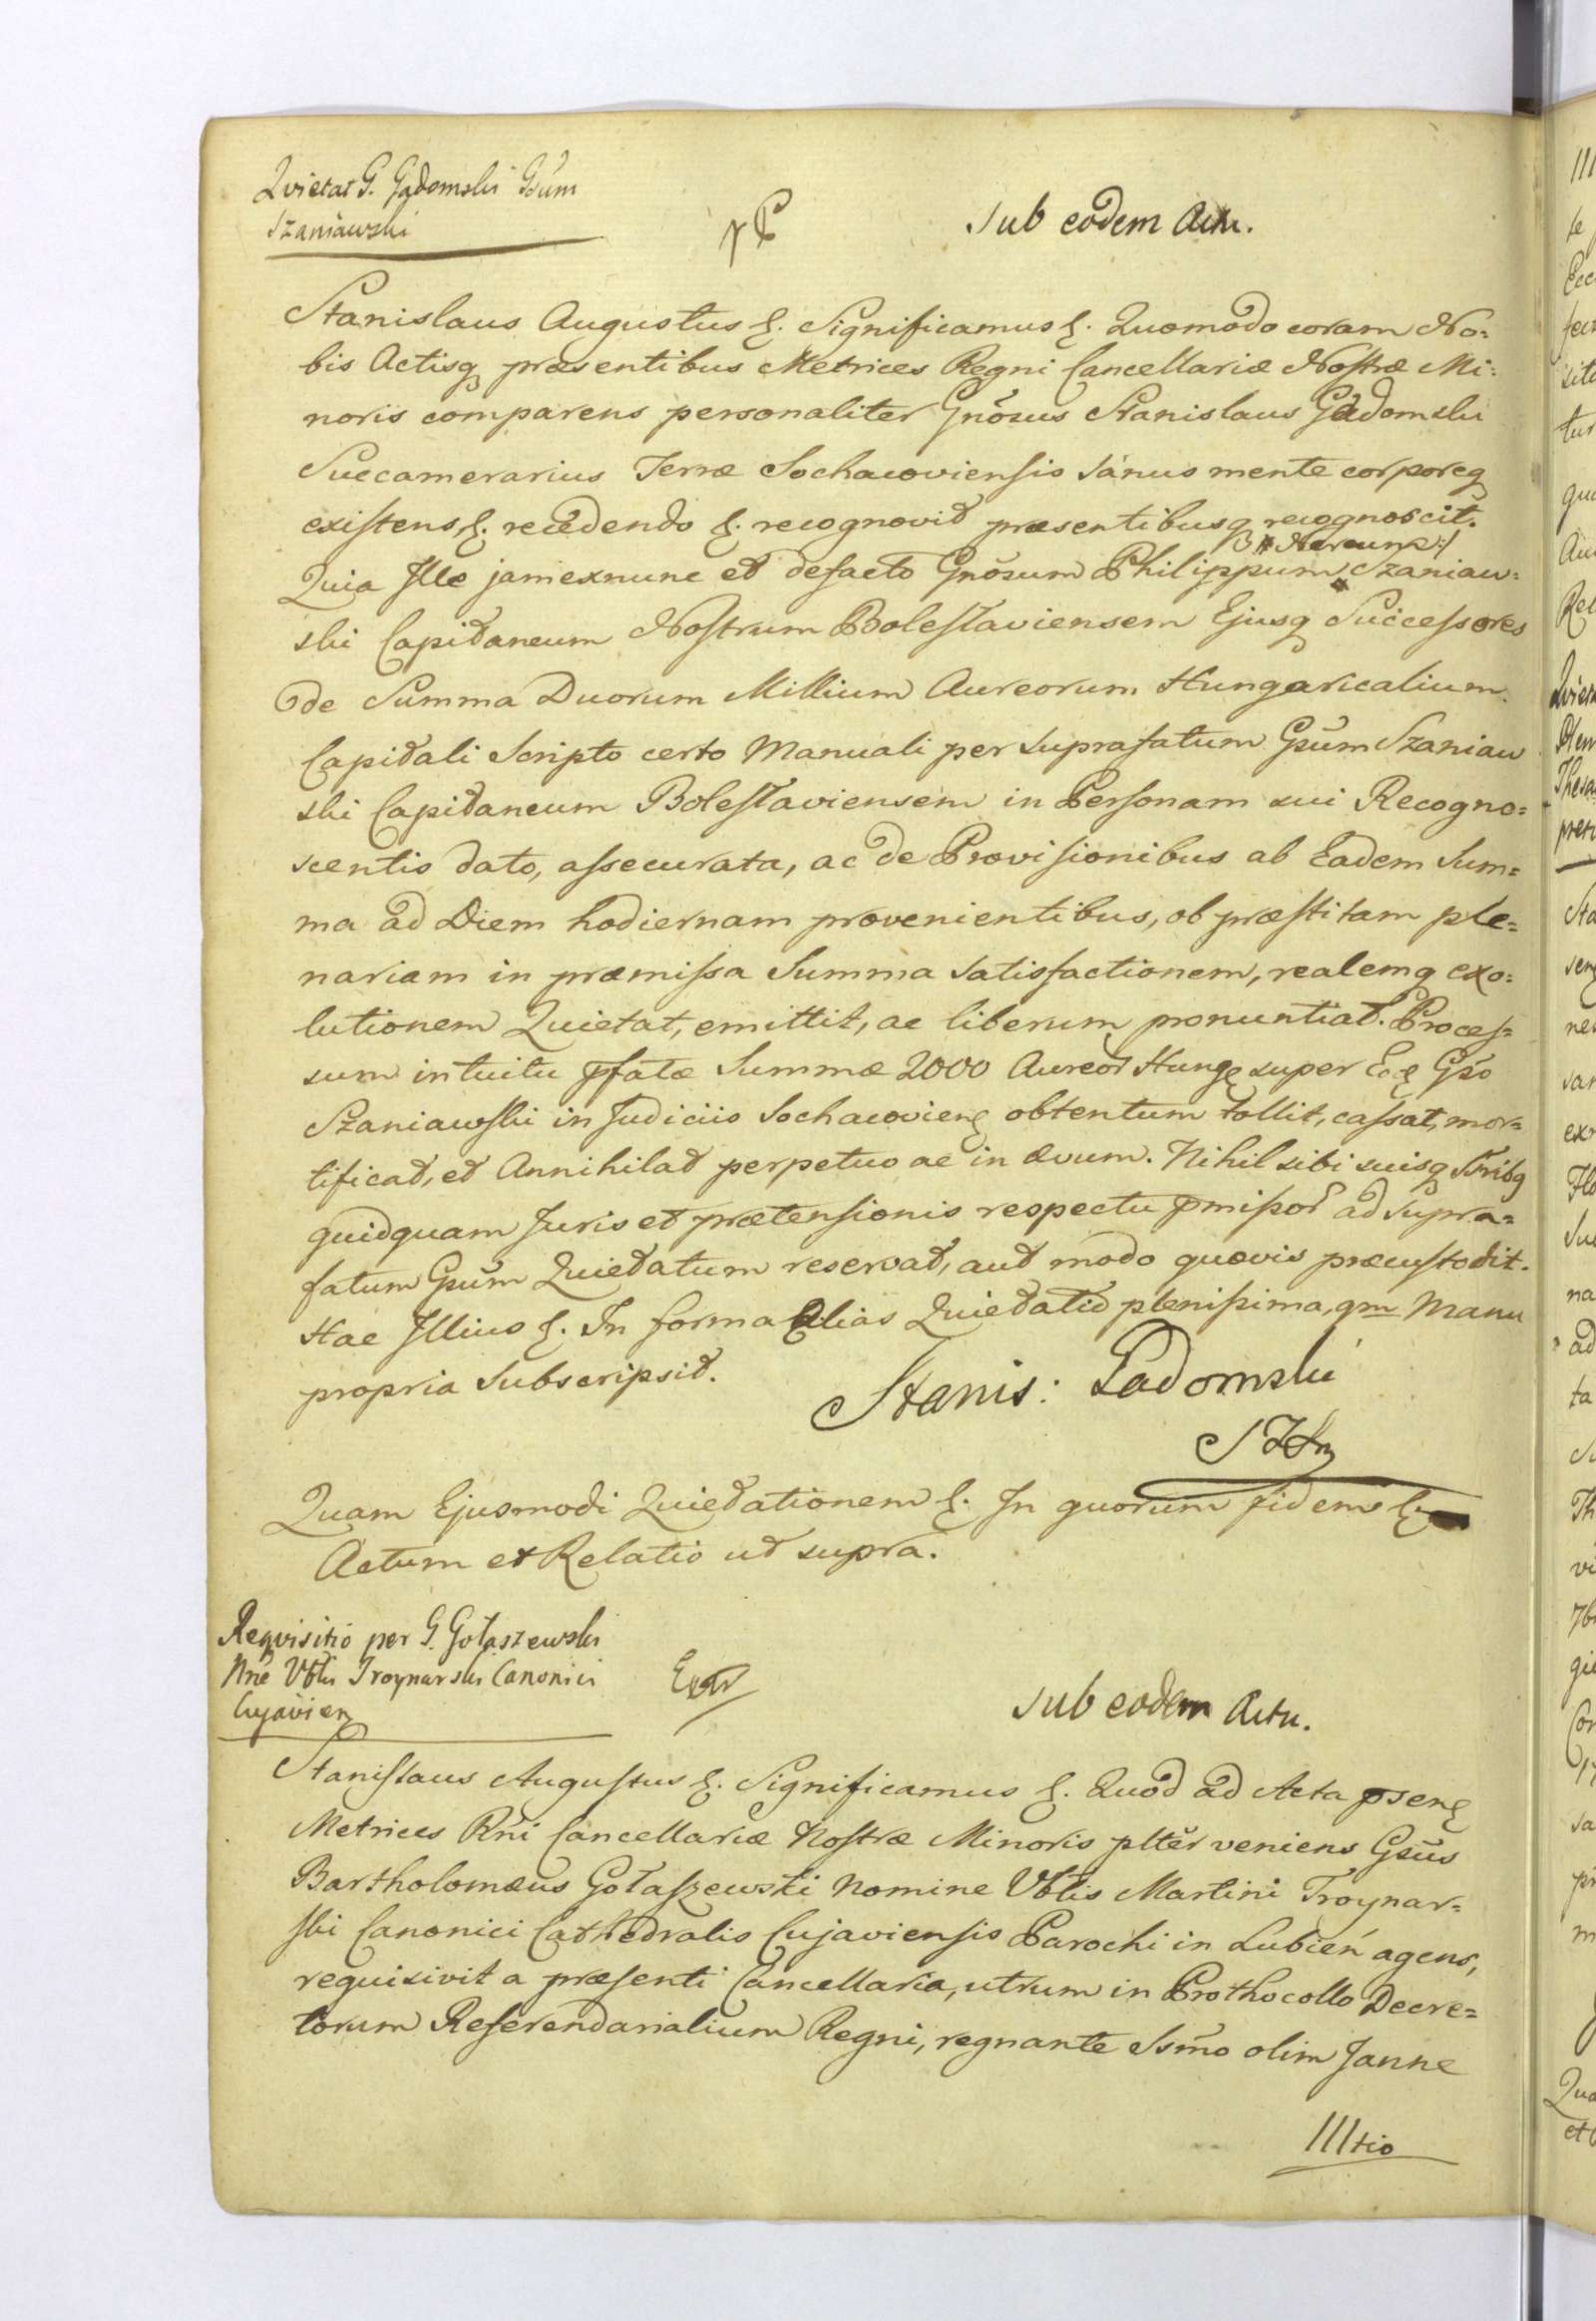 Quietat G. Gadomski Gsum
Szaniawski
Sub eodem Actu.
Stanislaus Augustus &. Significamus &. Quomodo coram No=
bis Actisq præsentibus Metrices Regni Cancellariæ Nostræ Mi=
noris comparens personaliter Gnõsus Stanislaus Gadomski
Succamerarius Terræ Sochacoviensis sanus mente corporeq
existens, &. recedendo &. recognovit præsentibusq recognoscit.
Quia Ille jam exnunc et defacto Gnõsum Philippum Szaniaw=
ski Capitaneum Nostrum Boleslaviensem Ejusq Successores
de Summa Duorum Millium Aureorum Hungaricalium
Capitali Scripto certo Manuali per suprafatum Gsũm Szaniaw
ski Capitaneum Boleslaviensem in Personam sui Recogno=
scentis dato, assecurata, ac de Provisionibus ab Eadem Sum=
ma ad Diem hodiernam provenientibus, ob præstitam ple=
nariam in præmissa Summa satisfactionem, realemq exo=
lutionem Quietat, emittit, ac liberum pronuntiat. Proces=
sum intuitu pfatæ Summæ 2000 Aureor Hung super Eod Gso
Szaniawski in Judiciis Sochacovien obtentum tollit, cassat, mor=
tificat, et Annihilat perpetuo ac in ævum. Nihil sibi suisq Srribq
quidquam Juris et prætensionis respectu pmissor ad supra=
fatum Gsũm Quietatum reservat, aut modo quovis præcustodit.
Hac Illius &. In forma Alias Quietatio plenissima, qm Manu
propria Subscripsit.
Stanis: Gadomski
Quam Ejusmodi Quietationem &. In quorum fidem &
Actum et Relatio ut supra.
Requisitio per G. Gołaszewski
Nne Vblis Troynarski Canonici
Cujavien
Sub eodem Actu.
Stanislaus Augustus &. Significamus &. Quod ad Acta psen
Metrices Rñi Cancellariæ Nostræ Minoris plter veniens Gsũs
Bartholomæus Gołaszewski Nomine Vblis Martini Troynar=
ski Canonici Cathedralis Cujaviensis Parochi in Lubień agens,
requisivit a præsenti Cancellaria, utrum in Prothocollo Decre=
torum Referendarialium Regni, regnante Ssmo olim Janne
IIItio